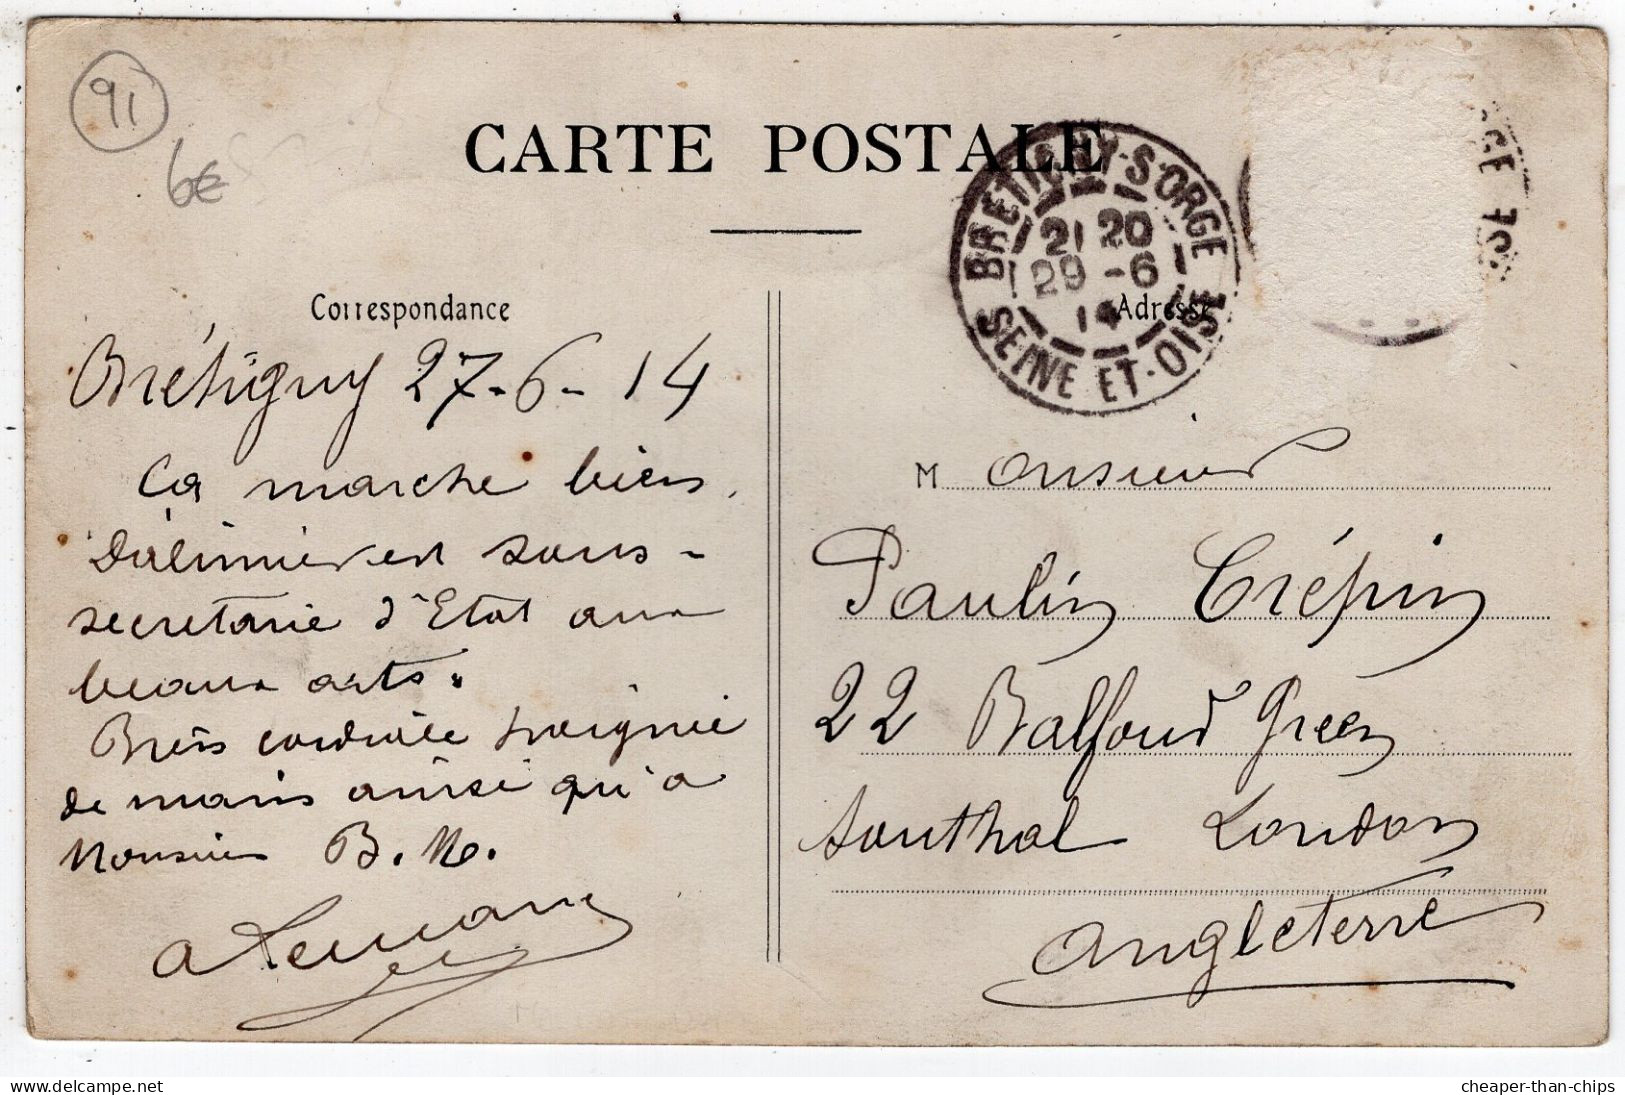 91
6€
CARTE POSTALE
BRETIGNY-S-ORGE
21 20
29 -6
14
SEINE-ET-OISE
Correspondance
Adresse
Brétigny 27-6-14
Ça marche bien.
Dalimier est sous-
secretaire d'Etat aux
beaux arts.
Bien cordiale poignée
de mains ainsi qu'à
Monsieur B. M.
Monsieur
Paulin Crépin
22 Balfour Green
Southal London
Angleterre
cheaper-than-chips